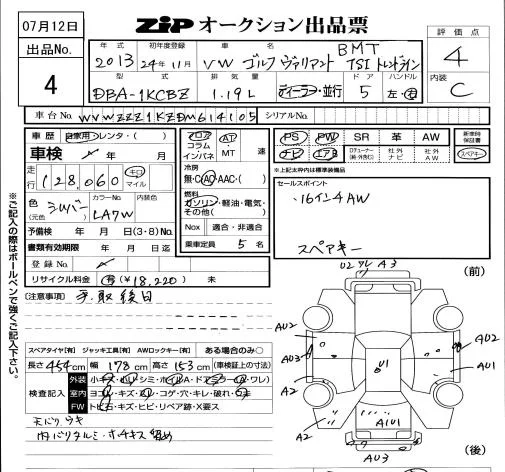 07月12日
ZIP オークション出品票
出品No.
4
評価点
4
内装
C
年式 初年度登録 車名
2013 24年11月 VW ゴルフ ヴァリアント BMT TSI トレンドライン
型式 排気量 ドア ハンドル
DBA-1KCBZ 1.19L ディーラー・並行 5 左・右
車台No. WVWZZZ1KZDM614105 シリアルNo.
車歴 自家用・レンタ・( )
車検
走行 128,060 キロ マイル
色(元色) シルバー カラーNo. LA7W 内装替色
予備検 年 月 日(3・8)No.
書類有効期限 年 月 日迄
登録No.
リサイクル料金 有(¥18,220) 未
フロア コラム インパネ
AT・MT 速
冷房
無・C・AC・AAC・( )
燃料
ガソリン・軽油・電気・その他( )
Nox 適合・非適合
乗車定員 5 名
PS PW SR 革 AW
ナビ エアB 社外ナビ 社外AW
新車時保証書
スペアキー
※上記太枠内は標準装備品
セールスポイント
・16インチAW
スペアキー
[注意事項] 書類後日
※ご記入の際はボールペンで強くご記入下さい。
スペアタイヤ[有] ジャッキ工具[有] AWロックキー[有] ある場合のみ○
長さ 454cm 幅 178cm 高さ 153cm (車検証上の寸法)
検査記入
外装
室内
FW トビ石・キズ・ヒビ・リペア跡・X要ス
天バリウキ
内バリタルミ・キズ
U2 ワレ A3
(前)
AU2
AU3
A2
A2
AU2
AU1
U1
A1U1
AU3
(後)